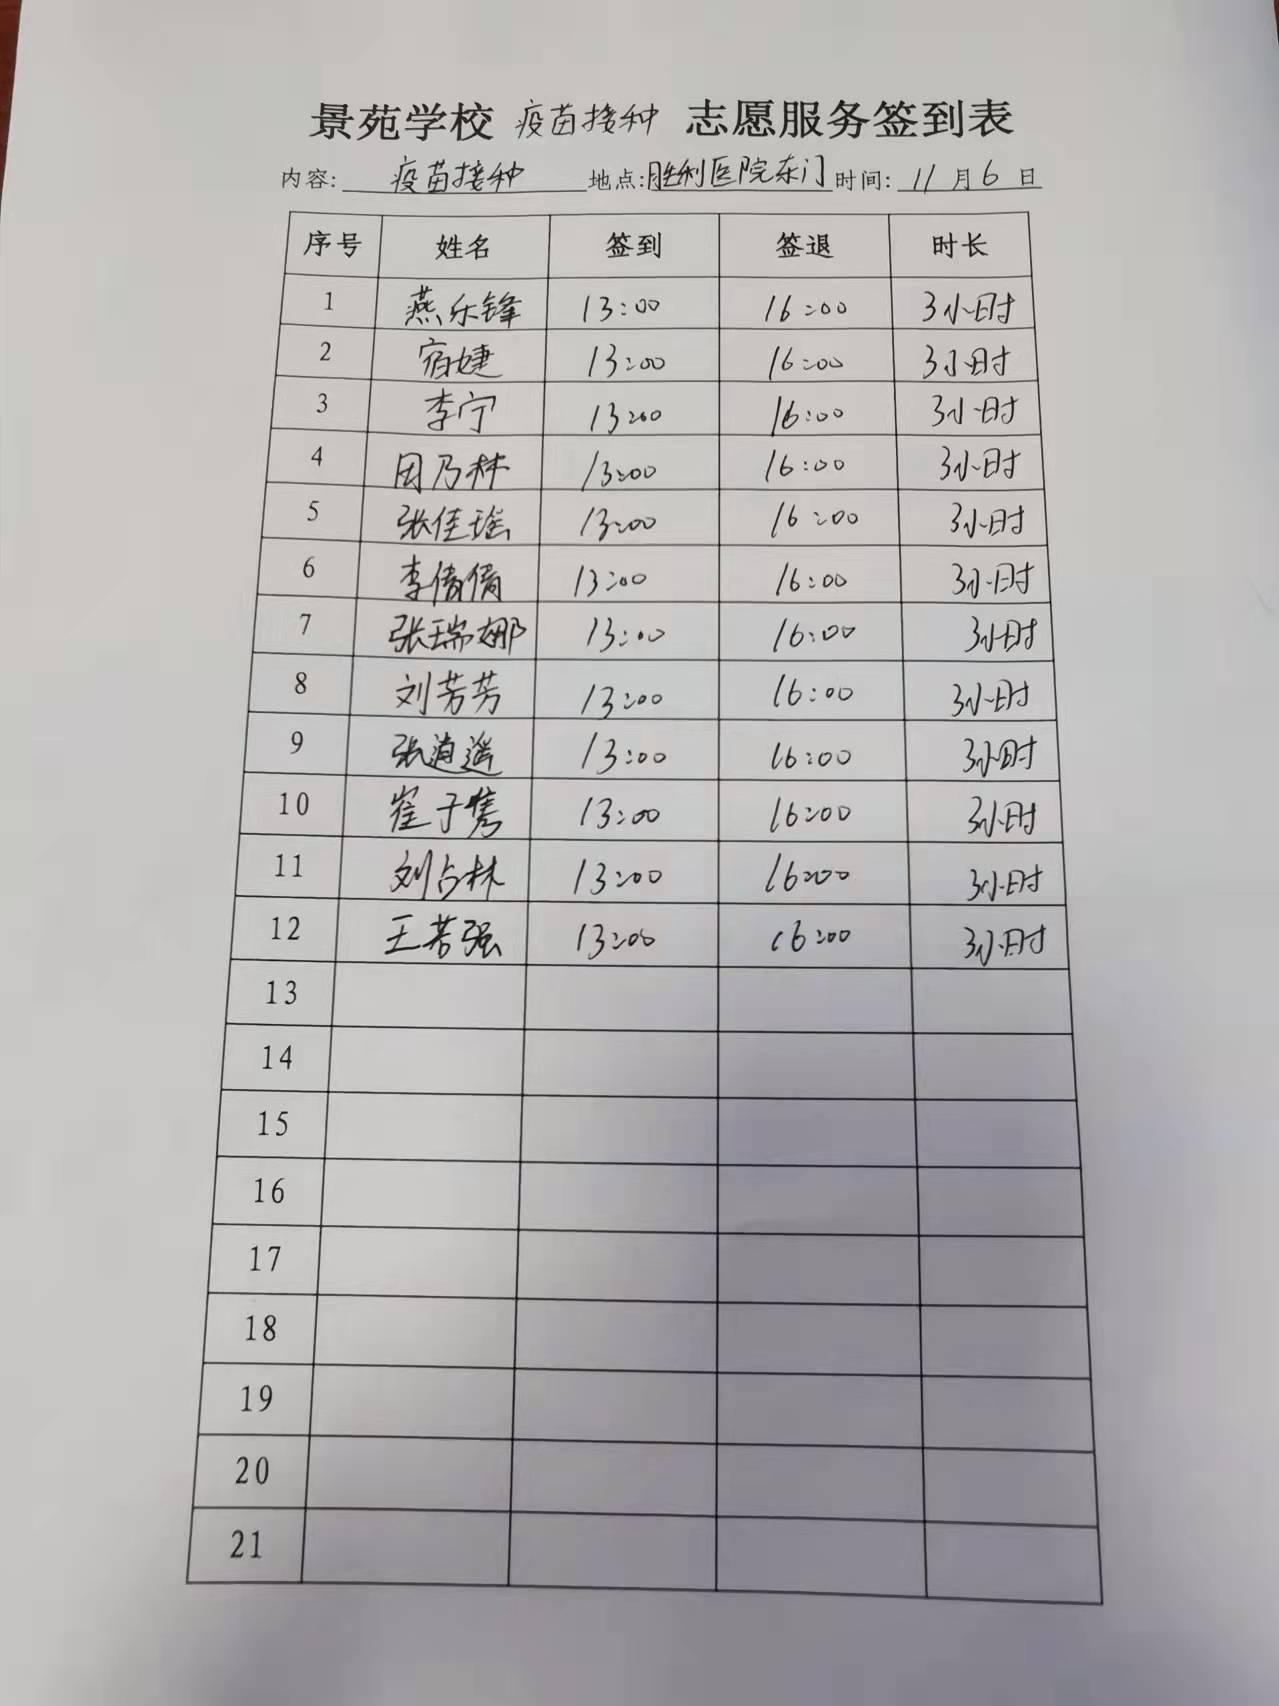 景苑学校 疫苗接种 志愿服务签到表
内容: 疫苗接种 地点: 胜利医院东门 时间: 11月6日
序号 姓名 签到 签退 时长
1 燕乐锋 13:00 16:00 3小时
2 宿婕 13:00 16:00 3小时
3 李宁 13:00 16:00 3小时
4 田乃林 13:00 16:00 3小时
5 张佳瑶 13:00 16:00 3小时
6 李倩倩 13:00 16:00 3小时
7 张瑞娜 13:00 16:00 3小时
8 刘芳芳 13:00 16:00 3小时
9 张逍遥 13:00 16:00 3小时
10 崔子隽 13:00 16:00 3小时
11 刘占林 13:00 16:00 3小时
12 王芳强 13:00 16:00 3小时
13
14
15
16
17
18
19
20
21